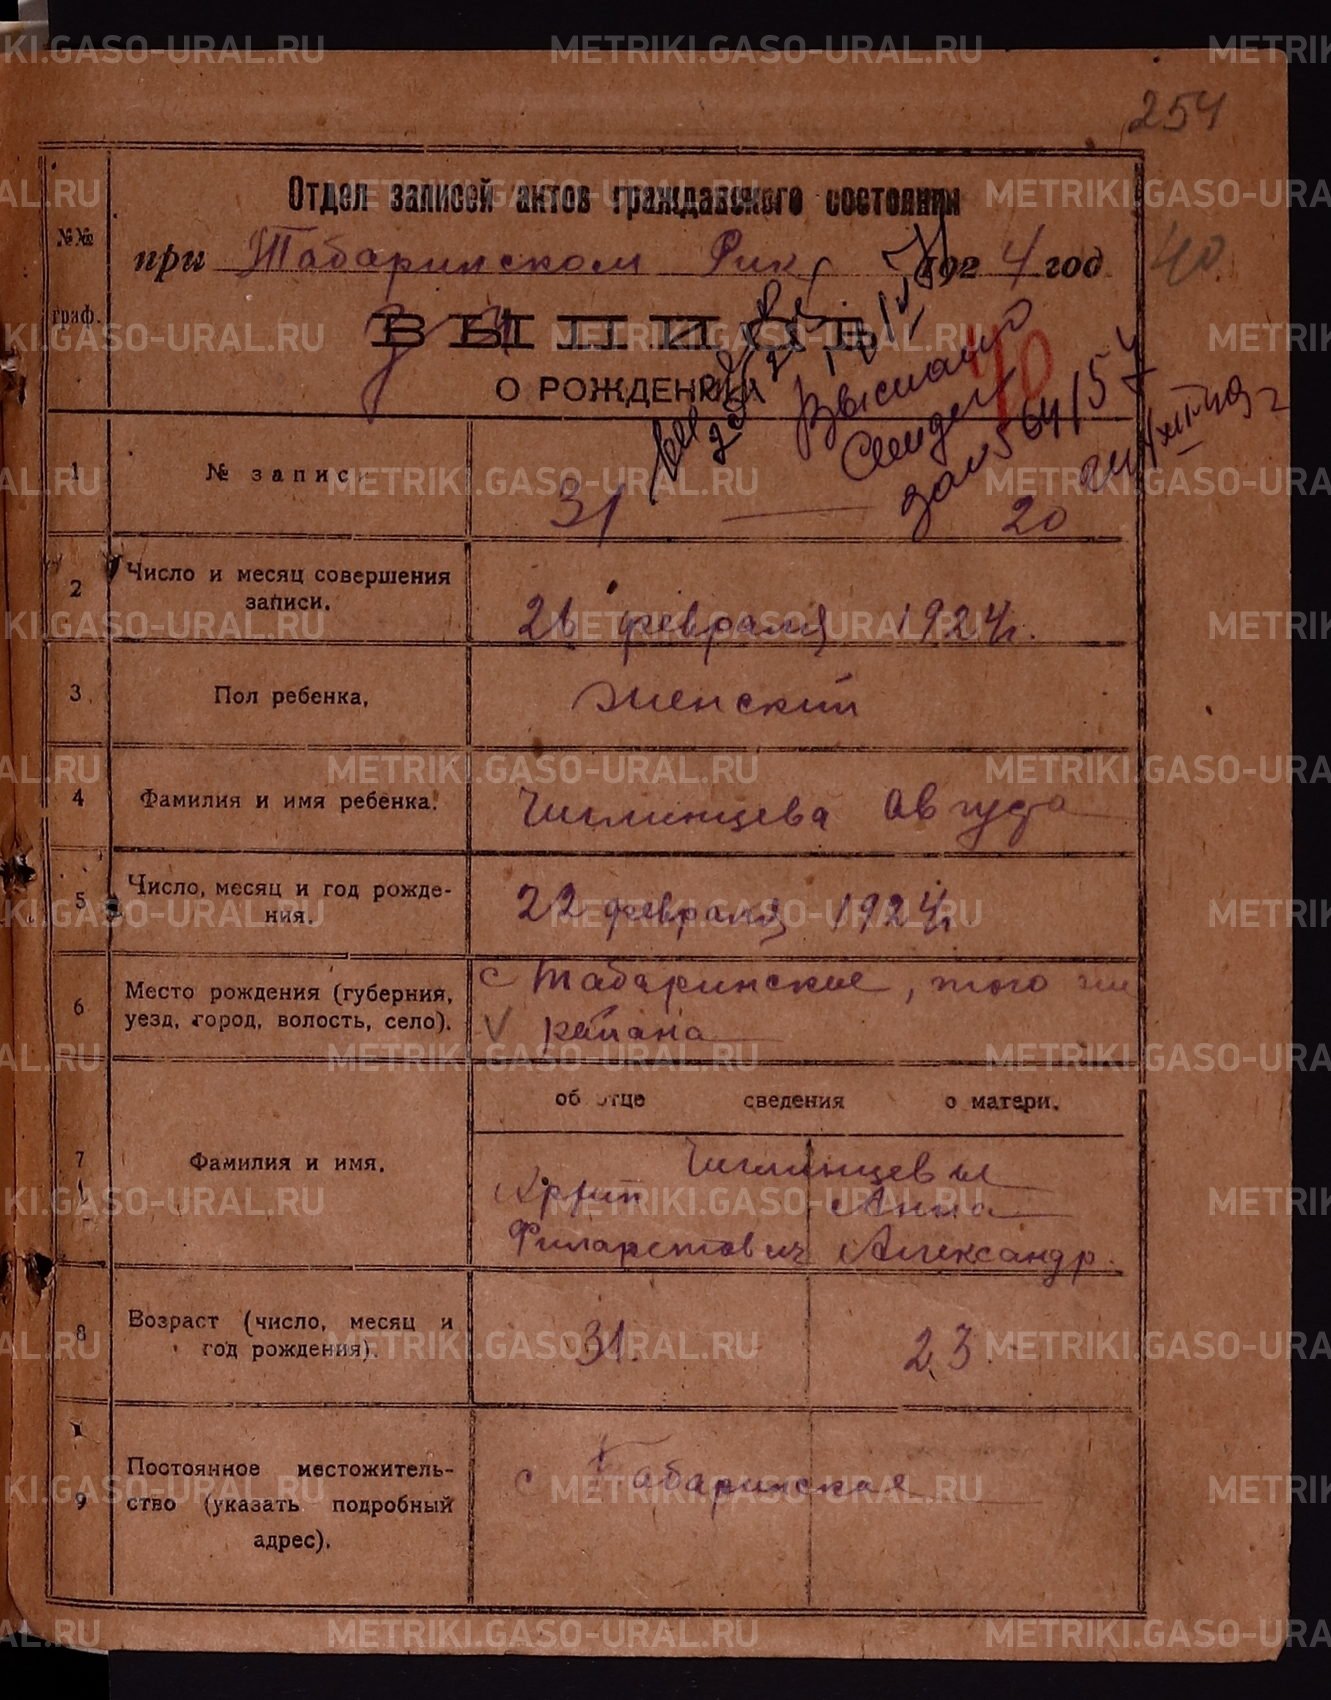 254
Отдел записей актов гражданского состояния
№№
граф.
при Табаринском Рик 1924 год
40
ВЫПИСЬ
О РОЖДЕНИИ
40
Выслано
зап 564/57
1 № запис. 31 — 20
2 Число и месяц совершения
записи.
26 февраля 1924 г.
3 Пол ребенка, женский
4 Фамилия и имя ребенка. Чиглинцева Авгуда
5 Число, месяц и год рожде-
ния.
22 февраля 1924 г.
6 Место рождения (губерния,
уезд, город, волость, село).
с Табаринское, того же
V района
об отце сведения о матери.
7 Фамилия и имя.
Чиглинцевы
Анна
Филаретович Александр.
8 Возраст (число, месяц и
год рождения).
31. 23.
9 Постоянное местожитель-
ство (указать подробный
адрес).
с Табаринское
METRIKI.GASO-URAL.RU